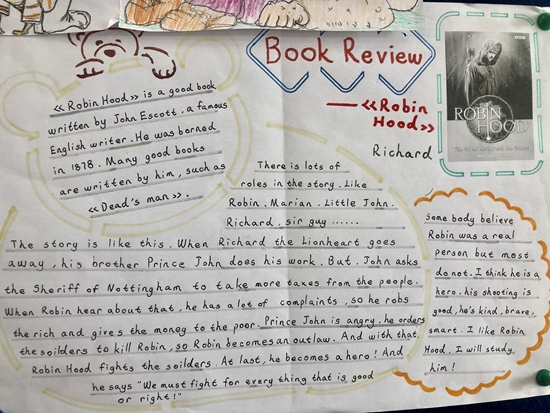 Book Review
— «Robin Hood»
Richard
BBC
ROBIN
HOOD
«Robin Hood» is a good book
written by John Escott, a famous
English writer. He was borned
in 1878. Many good books
are written by him, such as
«Dead's man».
There is lots of
roles in the story. Like
Robin. Marian. Little John.
Richard, sir guy ......
The story is like this. When Richard the Lionheart goes
away, his brother Prince John does his work. But. John asks
the Sheriff of Nottingham to take more taxes from the people.
When Robin hear about that, he has a lot of complaints, so he robs
the rich and gives the money to the poor. Prince John is angry, he orders
the soilders to kill Robin, so Robin becomes an outlaw. And with that,
Robin Hood fights the soilders. At last, he becomes a hero! And
he says "We must fight for every thing that is good
or right!"
some body believe
Robin was a real
person but most
do not. I think he is a
hero. his shooting is
good, he's kind, brave,
smart. I like Robin
Hood, I will study
him!